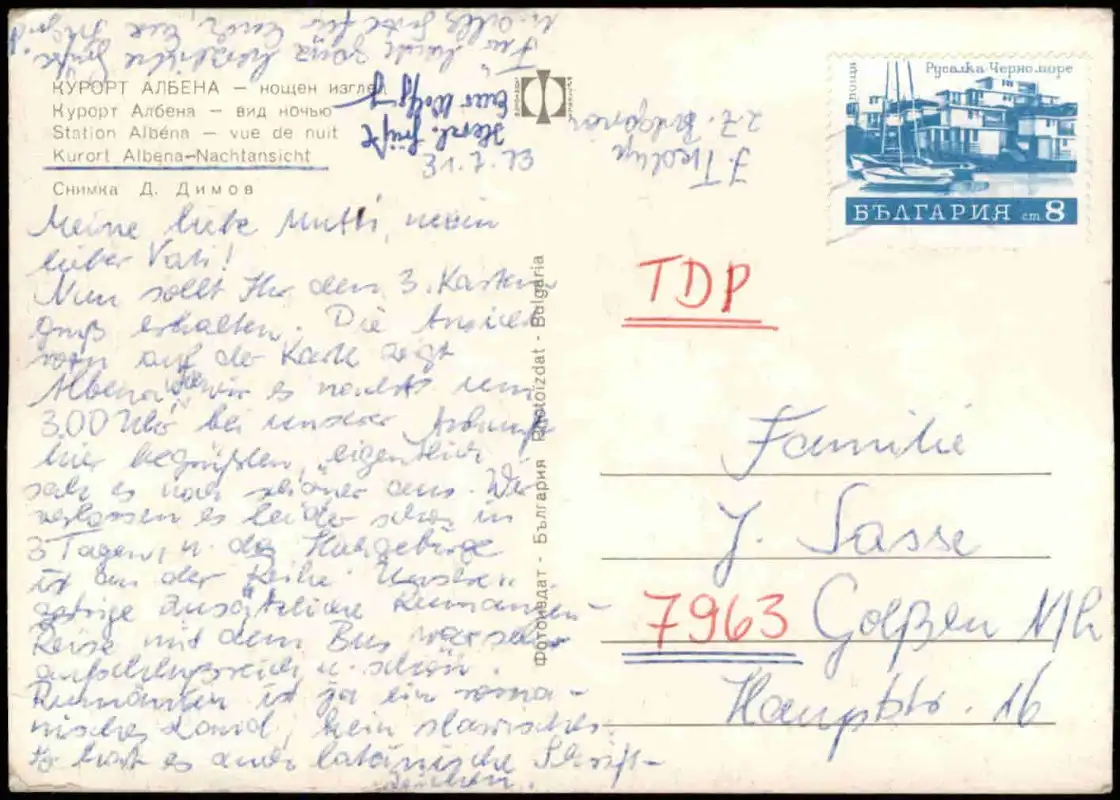 КУРОРТ АЛБЕНА — нощен изглед
Курорт Албена — вид ночью
Station Albéna — vue de nuit
Kurort Albena-Nachtansicht
Снимка Д. Димов
Meine liebe Mutti, mein
lieber Vati!
Nun sollt Ihr den 3. Karten-
gruß erhalten. Die Ansicht
vorn auf der Karte zeigt
Albena wie wir es nachts um
3.00 Uhr bei unserer Ankunft
hier begrüßten, eigentlich
sah es noch schöner aus. Wir
verlassen es leider schon in
3 Tagen, u. das
ist an der Reihe. Unsere
zusätzliche Rumänien-
Reise mit dem Bus war sehr
aufschlußreich u. schön.
Rumänien ist ja ein roma-
nisches Land, kein slawisches.
hat es auch lateinische Schrift-
zeichen.
Für heute ganz herzliche Grüße
u. alles Gute für Euch, Eure
Herzl. Grüße
Euer Wolfgang
J. Tkolya
z.Z. Bulgarien
Фотоиздат - България Photoizdat - Bulgaria
ФОТОИЗДАТ
поща
Русалка-Черно море
БЪЛГАРИЯ ст 8
TDP
Familie
J. Sasse
7963 Golßen N/L
Hauptstr. 16